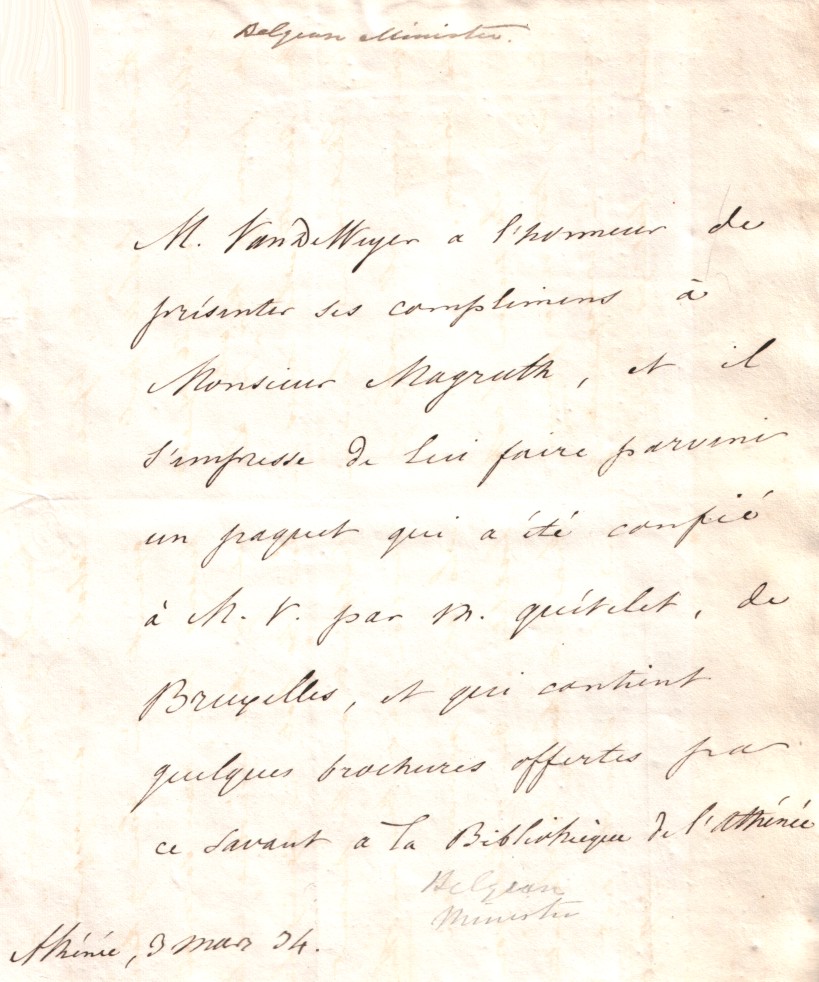 Belgean Minister.
M. Van De Weyer a l'honneur de
présenter ses complimens à
Monsieur Magrath, et il
s'empresse de lui faire parvenir
un paquet qui a été confié
à M. V. par M. Quételet, de
Bruxelles, et qui contient
quelques brochures offertes par
ce savant à la Bibliothèque de l'Athénée
Belgean
Minister
Athénée, 3 mars 34.